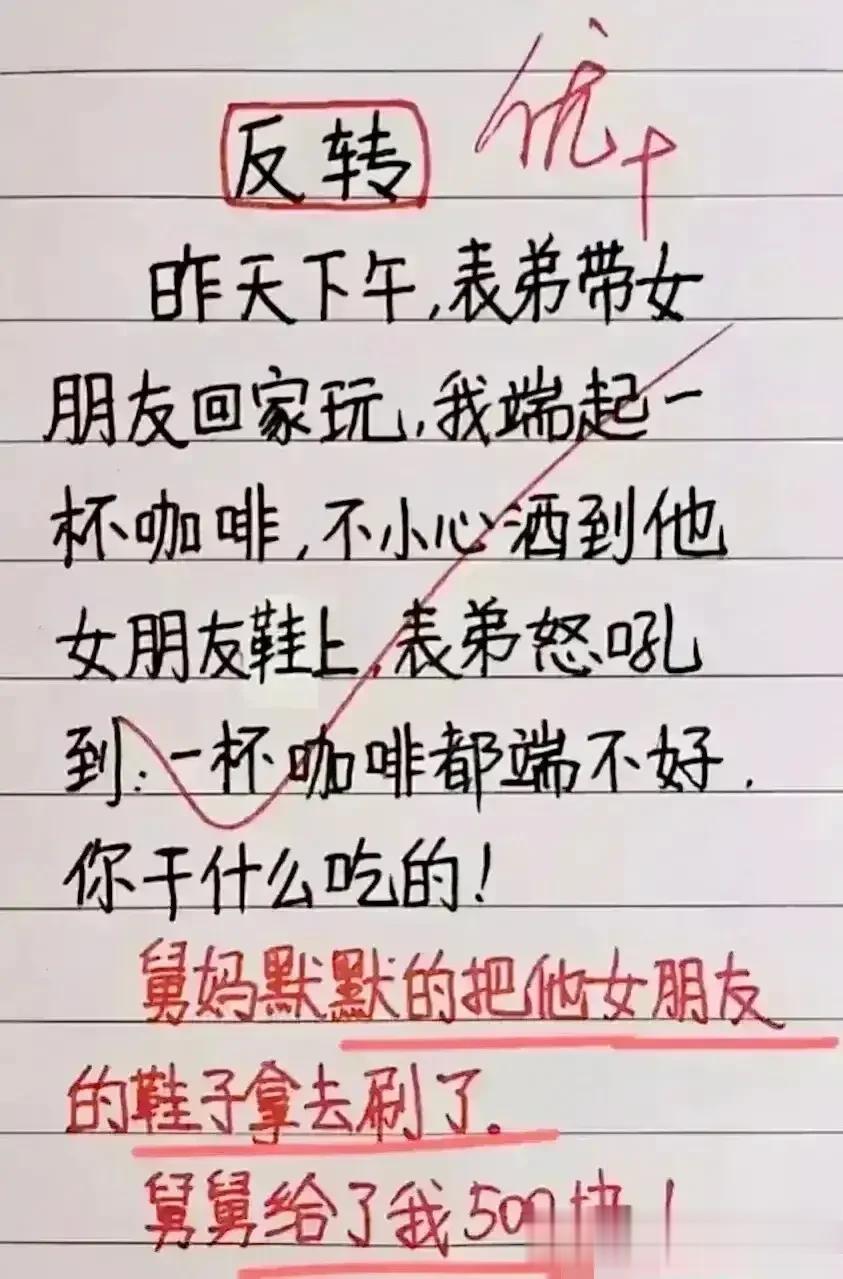 反转
优+
昨天下午,表弟带女
朋友回家玩,我端起一
杯咖啡,不小心洒到他
女朋友鞋上,表弟怒吼
到:一杯咖啡都端不好.
你干什么吃的!
舅妈默默的把他女朋友
的鞋子拿去刷了。
舅舅给了我500块!